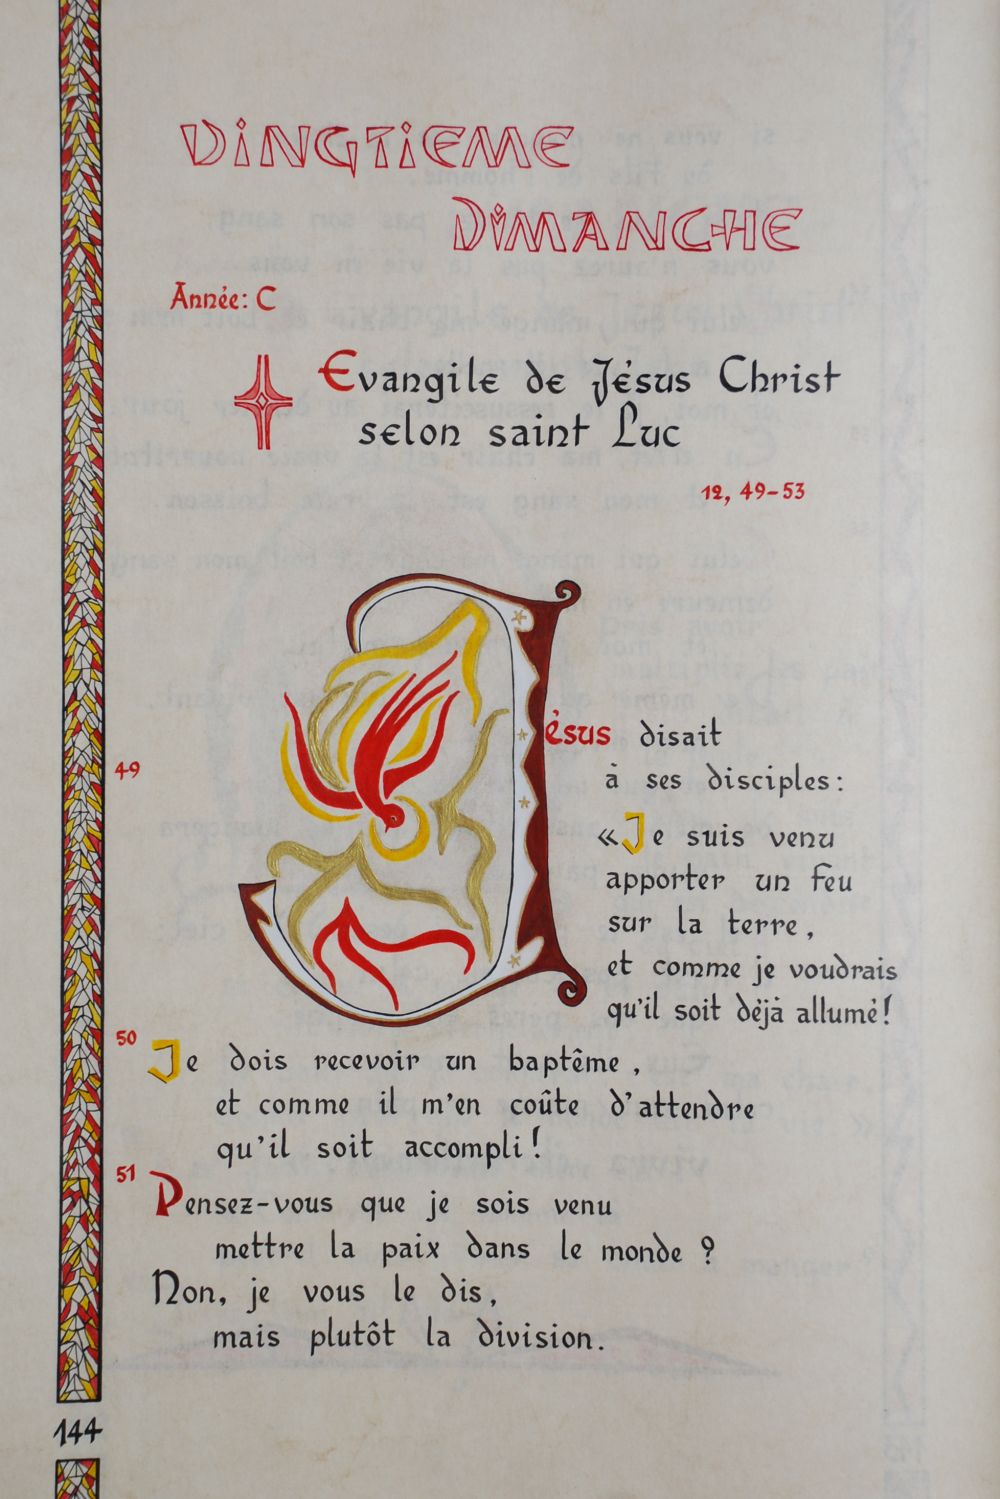 VINGTIEME
DIMANCHE
Année: C
Evangile de Jésus Christ
selon saint Luc
12, 49-53
Jésus disait
49
à ses disciples:
«Je suis venu
apporter un feu
sur la terre,
et comme je voudrais
qu'il soit déjà allumé!
50
Je dois recevoir un baptême,
et comme il m'en coûte d'attendre
qu'il soit accompli!
51
Pensez-vous que je sois venu
mettre la paix dans le monde ?
Non, je vous le dis,
mais plutôt la division.
144